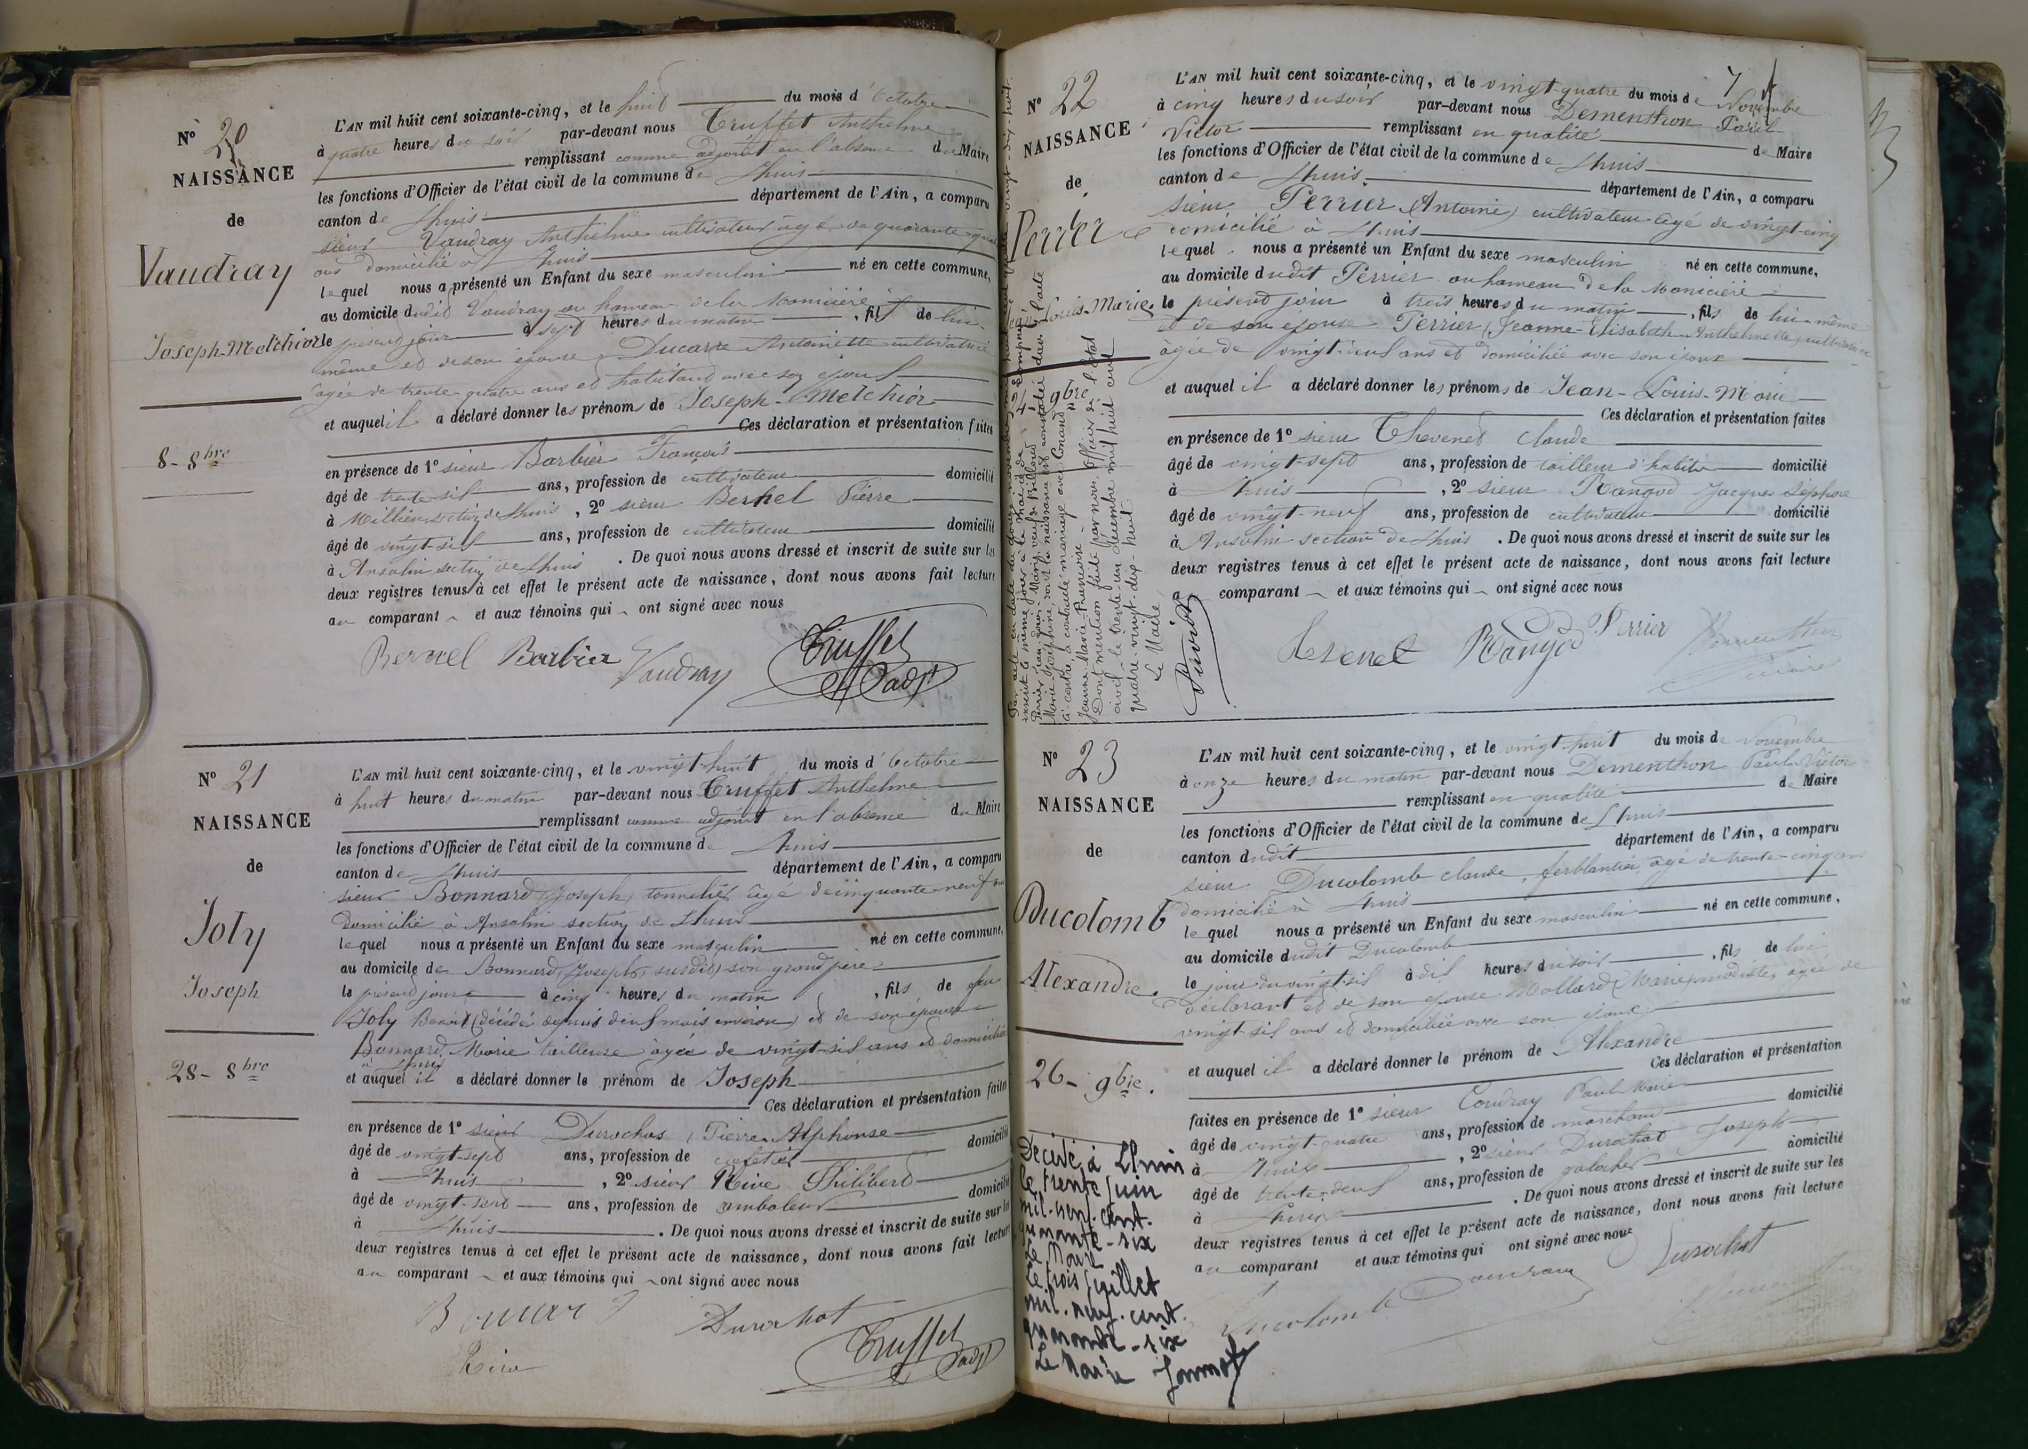 N° 20
NAISSANCE
de
Vaudray
Joseph-Melchior
8 - 8bre
L'AN mil huit cent soixante-cinq, et le huit du mois d'Octobre
à quatre heures du soir par-devant nous Truffet Anthelme
remplissant comme adjoint en l'absence du Maire
les fonctions d'Officier de l'état civil de la commune de Lhuis
canton de Lhuis département de l'Ain, a comparu
sieur Vaudray Anthelme cultivateur âgé de quarante
ans domicilié à Lhuis
lequel nous a présenté un Enfant du sexe masculin né en cette commune,
au domicile dudit Vaudray au hameau de la
le présent jour à sept heures du matin, fils de lui
même et de son épouse Ducarre Antoinette cultivatrice
âgée de trente quatre ans et habitant avec son époux
et auquel il a déclaré donner les prénoms de Joseph-Melchior
Ces déclaration et présentation faites
en présence de 1° sieur Barbier François
âgé de trente six ans, profession de cultivateur domicilié
à Millieu section de Lhuis, 2° sieur Bernel Pierre
âgé de vingt-six ans, profession de cultivateur domicilié
à Ansolin section de Lhuis. De quoi nous avons dressé et inscrit de suite sur les
deux registres tenus à cet effet le présent acte de naissance, dont nous avons fait lecture
au comparant et aux témoins qui ont signé avec nous
Bernel Barbier Vaudray Truffet adjt
N° 21
NAISSANCE
de
Joly
Joseph
28 - 8bre
L'AN mil huit cent soixante-cinq, et le vingt-huit du mois d'Octobre
à huit heures du matin par-devant nous Truffet Anthelme
remplissant comme adjoint en l'absence du Maire
les fonctions d'Officier de l'état civil de la commune de Lhuis
canton de Lhuis département de l'Ain, a comparu
sieur Bonnard (Joseph) tonnelier âgé de cinquante-neuf ans
domicilié à Ansolin section de Lhuis
lequel nous a présenté un Enfant du sexe masculin né en cette commune,
au domicile de Bonnard (Joseph) susdit, son grand père
le présent jour à cinq heures du matin, fils de feu
Joly Benoit (décédé depuis deux mois environ) et de son épouse
Bonnard Marie tailleuse âgée de vingt-six ans et domiciliée
à Lhuis
et auquel il a déclaré donner le prénom de Joseph
Ces déclaration et présentation faites
en présence de 1° sieur Durochat, Pierre Alphonse domicilié
âgé de vingt-sept ans, profession de cafetier
à Lhuis, 2° sieur Rive Philibert
âgé de vingt-sept ans, profession de domicilié
à Lhuis. De quoi nous avons dressé et inscrit de suite sur les
deux registres tenus à cet effet le présent acte de naissance, dont nous avons fait lecture
au comparant et aux témoins qui ont signé avec nous
Bonnard Durochat
Rive Truffet adjt
7
N° 22
NAISSANCE
de
Perrier
Jean-Louis-Marie
9bre
L'AN mil huit cent soixante-cinq, et le vingt-quatre du mois de Novembre
à cinq heures du soir par-devant nous Dementhon Paul
Victor remplissant en qualité de Maire
les fonctions d'Officier de l'état civil de la commune de Lhuis
canton de Lhuis département de l'Ain, a comparu
sieur Perrier (Antoine) cultivateur âgé de vingt-cinq
domicilié à Lhuis
lequel nous a présenté un Enfant du sexe masculin né en cette commune,
au domicile dudit Perrier au hameau de la
le présent jour à trois heures du matin, fils de lui-même
et de son épouse Perrier (Jeanne-Elisabeth-Anthelmette) cultivatrice
âgée de vingt-neuf ans et domiciliée avec son époux
et auquel il a déclaré donner les prénoms de Jean-Louis-Marie
Ces déclaration et présentation faites
en présence de 1° sieur Thevenet Claude
âgé de vingt-sept ans, profession de tailleur d'habits domicilié
à Lhuis, 2° sieur Rangod Jacques
âgé de vingt-neuf ans, profession de cultivateur domicilié
à Ansolin section de Lhuis. De quoi nous avons dressé et inscrit de suite sur les
deux registres tenus à cet effet le présent acte de naissance, dont nous avons fait lecture
au comparant et aux témoins qui ont signé avec nous
Rangod Perrier Dementhon
Maire
Dont mention faite par nous officier de l'état
civil le trente un décembre mil huit cent
quatre-vingt-dix-huit.
Le Maire
N° 23
NAISSANCE
de
Ducolomb
Alexandre.
26 - 9bre.
Décédé à Lhuis
le trente juin
mil-neuf-cent-
quarante-six
Le Maire
Le trois juillet
mil-neuf-cent-
quarante-six
Le Maire
L'AN mil huit cent soixante-cinq, et le vingt-huit du mois de Novembre
à onze heures du matin par-devant nous Dementhon Paul Victor
remplissant en qualité de Maire
les fonctions d'Officier de l'état civil de la commune de Lhuis
canton dudit département de l'Ain, a comparu
sieur Ducolomb Claude, ferblantier, âgé de trente-cinq ans
domicilié à Lhuis
lequel nous a présenté un Enfant du sexe masculin né en cette commune,
au domicile dudit Ducolomb
le jour du vingt-six à dix heures du soir, fils de lui
déclarant et de son épouse Mollard (Marie) modiste, âgée de
vingt-six ans et domiciliée avec son époux
et auquel il a déclaré donner le prénom de Alexandre
Ces déclaration et présentation
faites en présence de 1° sieur Coudray Paul Marie
âgé de vingt-quatre ans, profession de marchand domicilié
à Lhuis, 2° sieur Durochat Joseph
âgé de trente-deux ans, profession de galocher domicilié
à Lhuis. De quoi nous avons dressé et inscrit de suite sur les
deux registres tenus à cet effet le présent acte de naissance, dont nous avons fait lecture
au comparant et aux témoins qui ont signé avec nous
Ducolomb Coudray Durochat